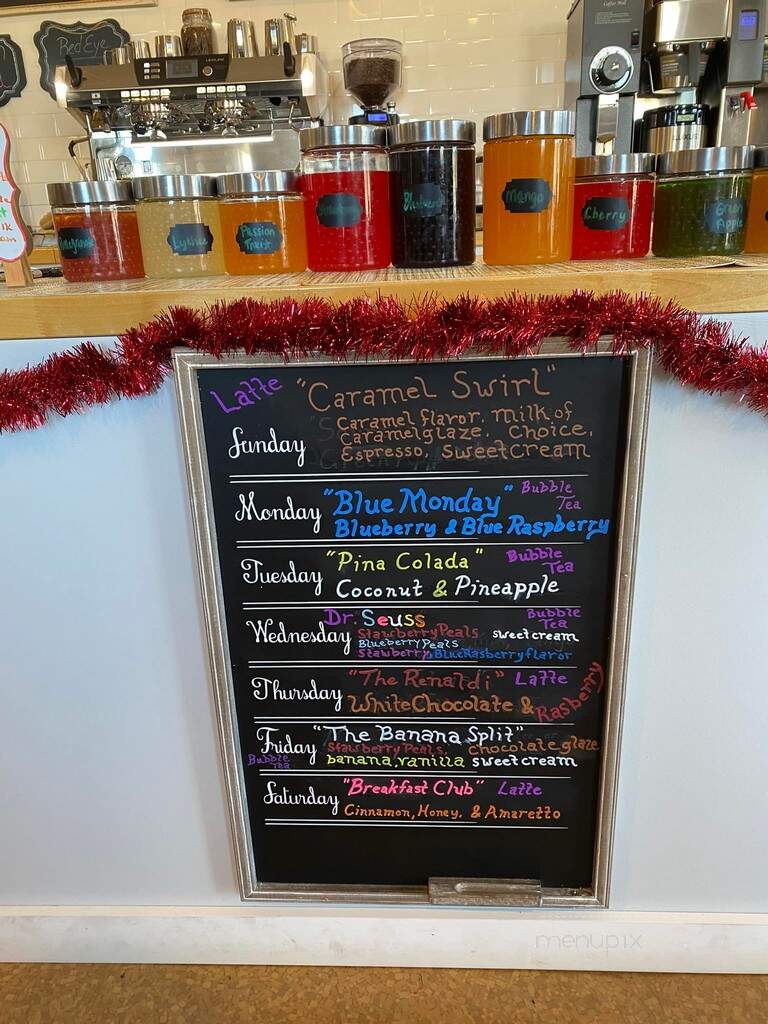 Red Eye
Lychee
Passion Fruit
Mango
Cherry
Green Apple
Latte "Caramel Swirl"
Sunday Caramel flavor. milk of
caramel glaze. Choice.
Espresso. sweet cream
Monday "Blue Monday" Bubble Tea
Blueberry & Blue Raspberry
Tuesday "Pina Colada" Bubble Tea
Coconut & Pineapple
Wednesday Dr. Seuss Bubble Tea
StawberryPeals sweetcream
BlueberryPeals
Stawberry, BlueRasberry flavor
Thursday "The Renaldi" Latte
White Chocolate & Rasberry
Friday "The Banana Split"
Bubble Tea StawberryPeals, chocolate glaze
banana, vanilla sweetcream
Saturday "Breakfast Club" Latte
Cinnamon, Honey, & Amaretto
menupix